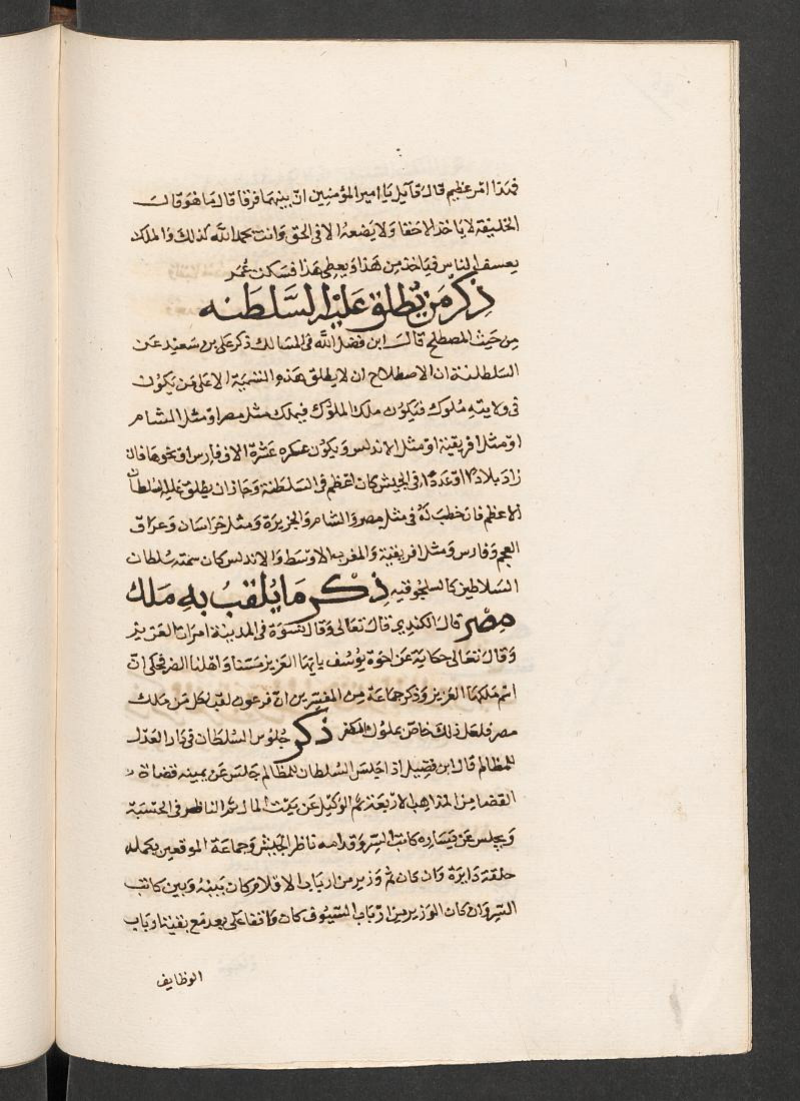 فهذا امر عظيم قال قايل يا امير المؤمنين ان بينهما فرقا قال ما هو قال
الخليفة لا ياخذ الا حقا ولا يضعه الا فى الحق وانت بحمد الله كذلك والملك
يعسف الناس فياخذ من هذا ويعطى هذا فسكن عمر
ذكر من يطلق عليه السلطنه
من حيث المصطلح قال ابن فضل الله فى المسالك ذكر على بن سعيد عن
السلطنة ان الاصطلاح ان لا يطلق هذه التسمية الا على من يكون
فى ولايته ملوك فيكون ملك الملوك فيملك مثل مصر او مثل الشام
او مثل افريقية او مثل الاندلس ويكون عسكره عشرة الاف فارس او نحوها فان
زاد بلادا او عددا فى الجيش كان اعظم فى السلطنة وجاز ان يطلق عليه السلطان
الاعظم فان خطب له فى مثل مصر والشام والجزيرة ومثل خراسان وعراق
العجم وفارس ومثل افريقية والمغرب الاوسط والاندلس كان سمته سلطان
السلاطين كالسلجوقيه ذكر ما يلقب به ملك
مصر قال الكندى قال تعالى وقال نسوة فى المدينة امرات العزيز
وقال تعالى حكاية عن اخوة يوسف يايها العزيز مسنا واهلنا الضر فحكى ان
اسم ملكها العزيز وذكر جماعة من المفسرين ان فرعون لقب لكل من ملك
مصر فلعل ذلك خاص بملوك الكفر ذكر جلوس السلطان فى دار العدل
للمظالم قال ابن فضيل اذا جلس السلطان للمظالم جلس عن يمينه قضاة
القضا من المذاهب الاربعة ثم الوكيل عن بيت المال ثم الناظر فى الحسبة
ويجلس عن يساره كاتب السر وقدامه ناظر الجيش وجماعة الموقعين يكمله
حلقة دايرة وان كان ثم وزير من ارباب الاقلام كان بينه وبين كاتب
السر وان كان الوزير من ارباب السيوف كان واقفا على بعد مع بقية ارباب
الوظايف